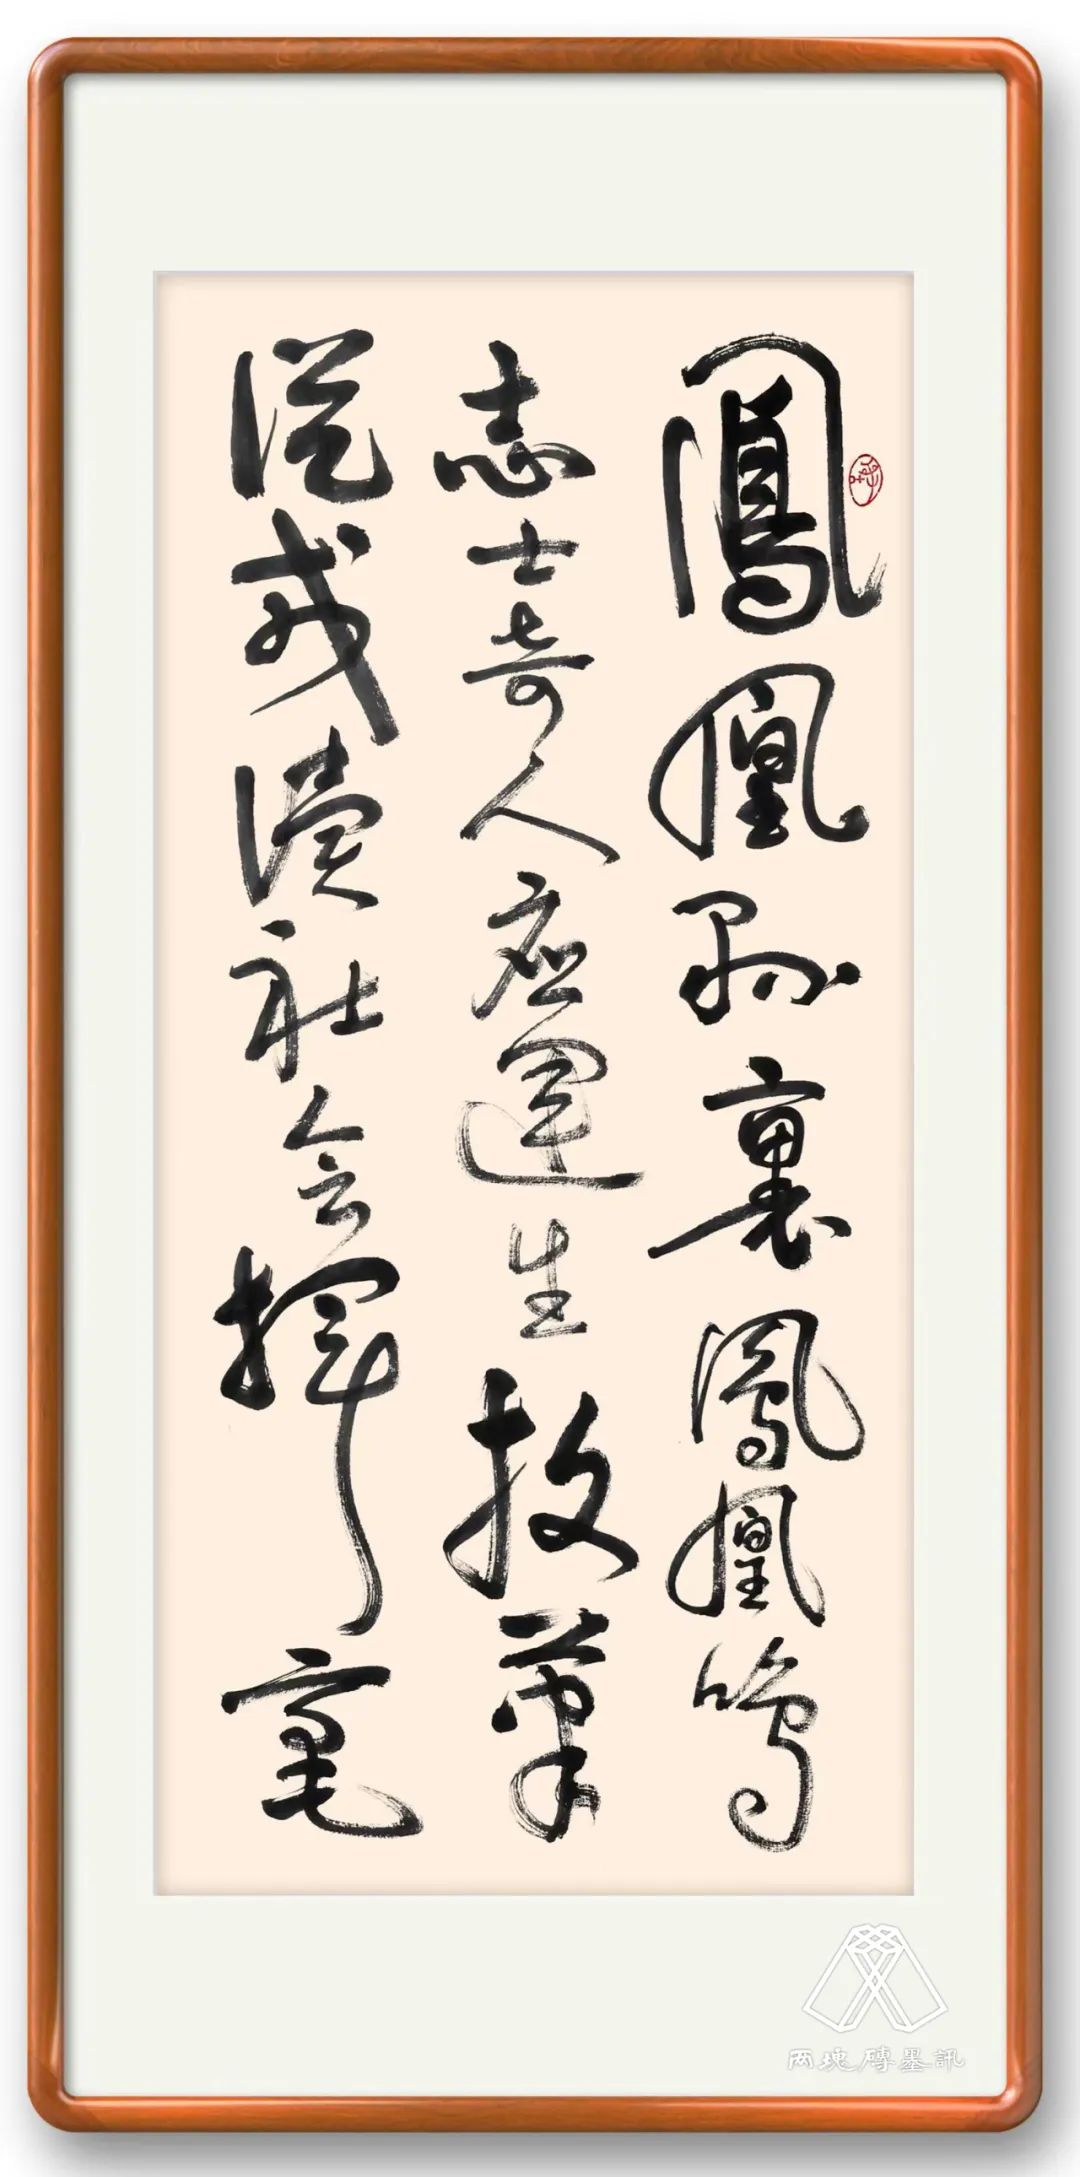 鳳凰縣裏鳳凰鳴
志士奇人應運生投筆
從戎讀社會揮毫
两塊磚墨訊